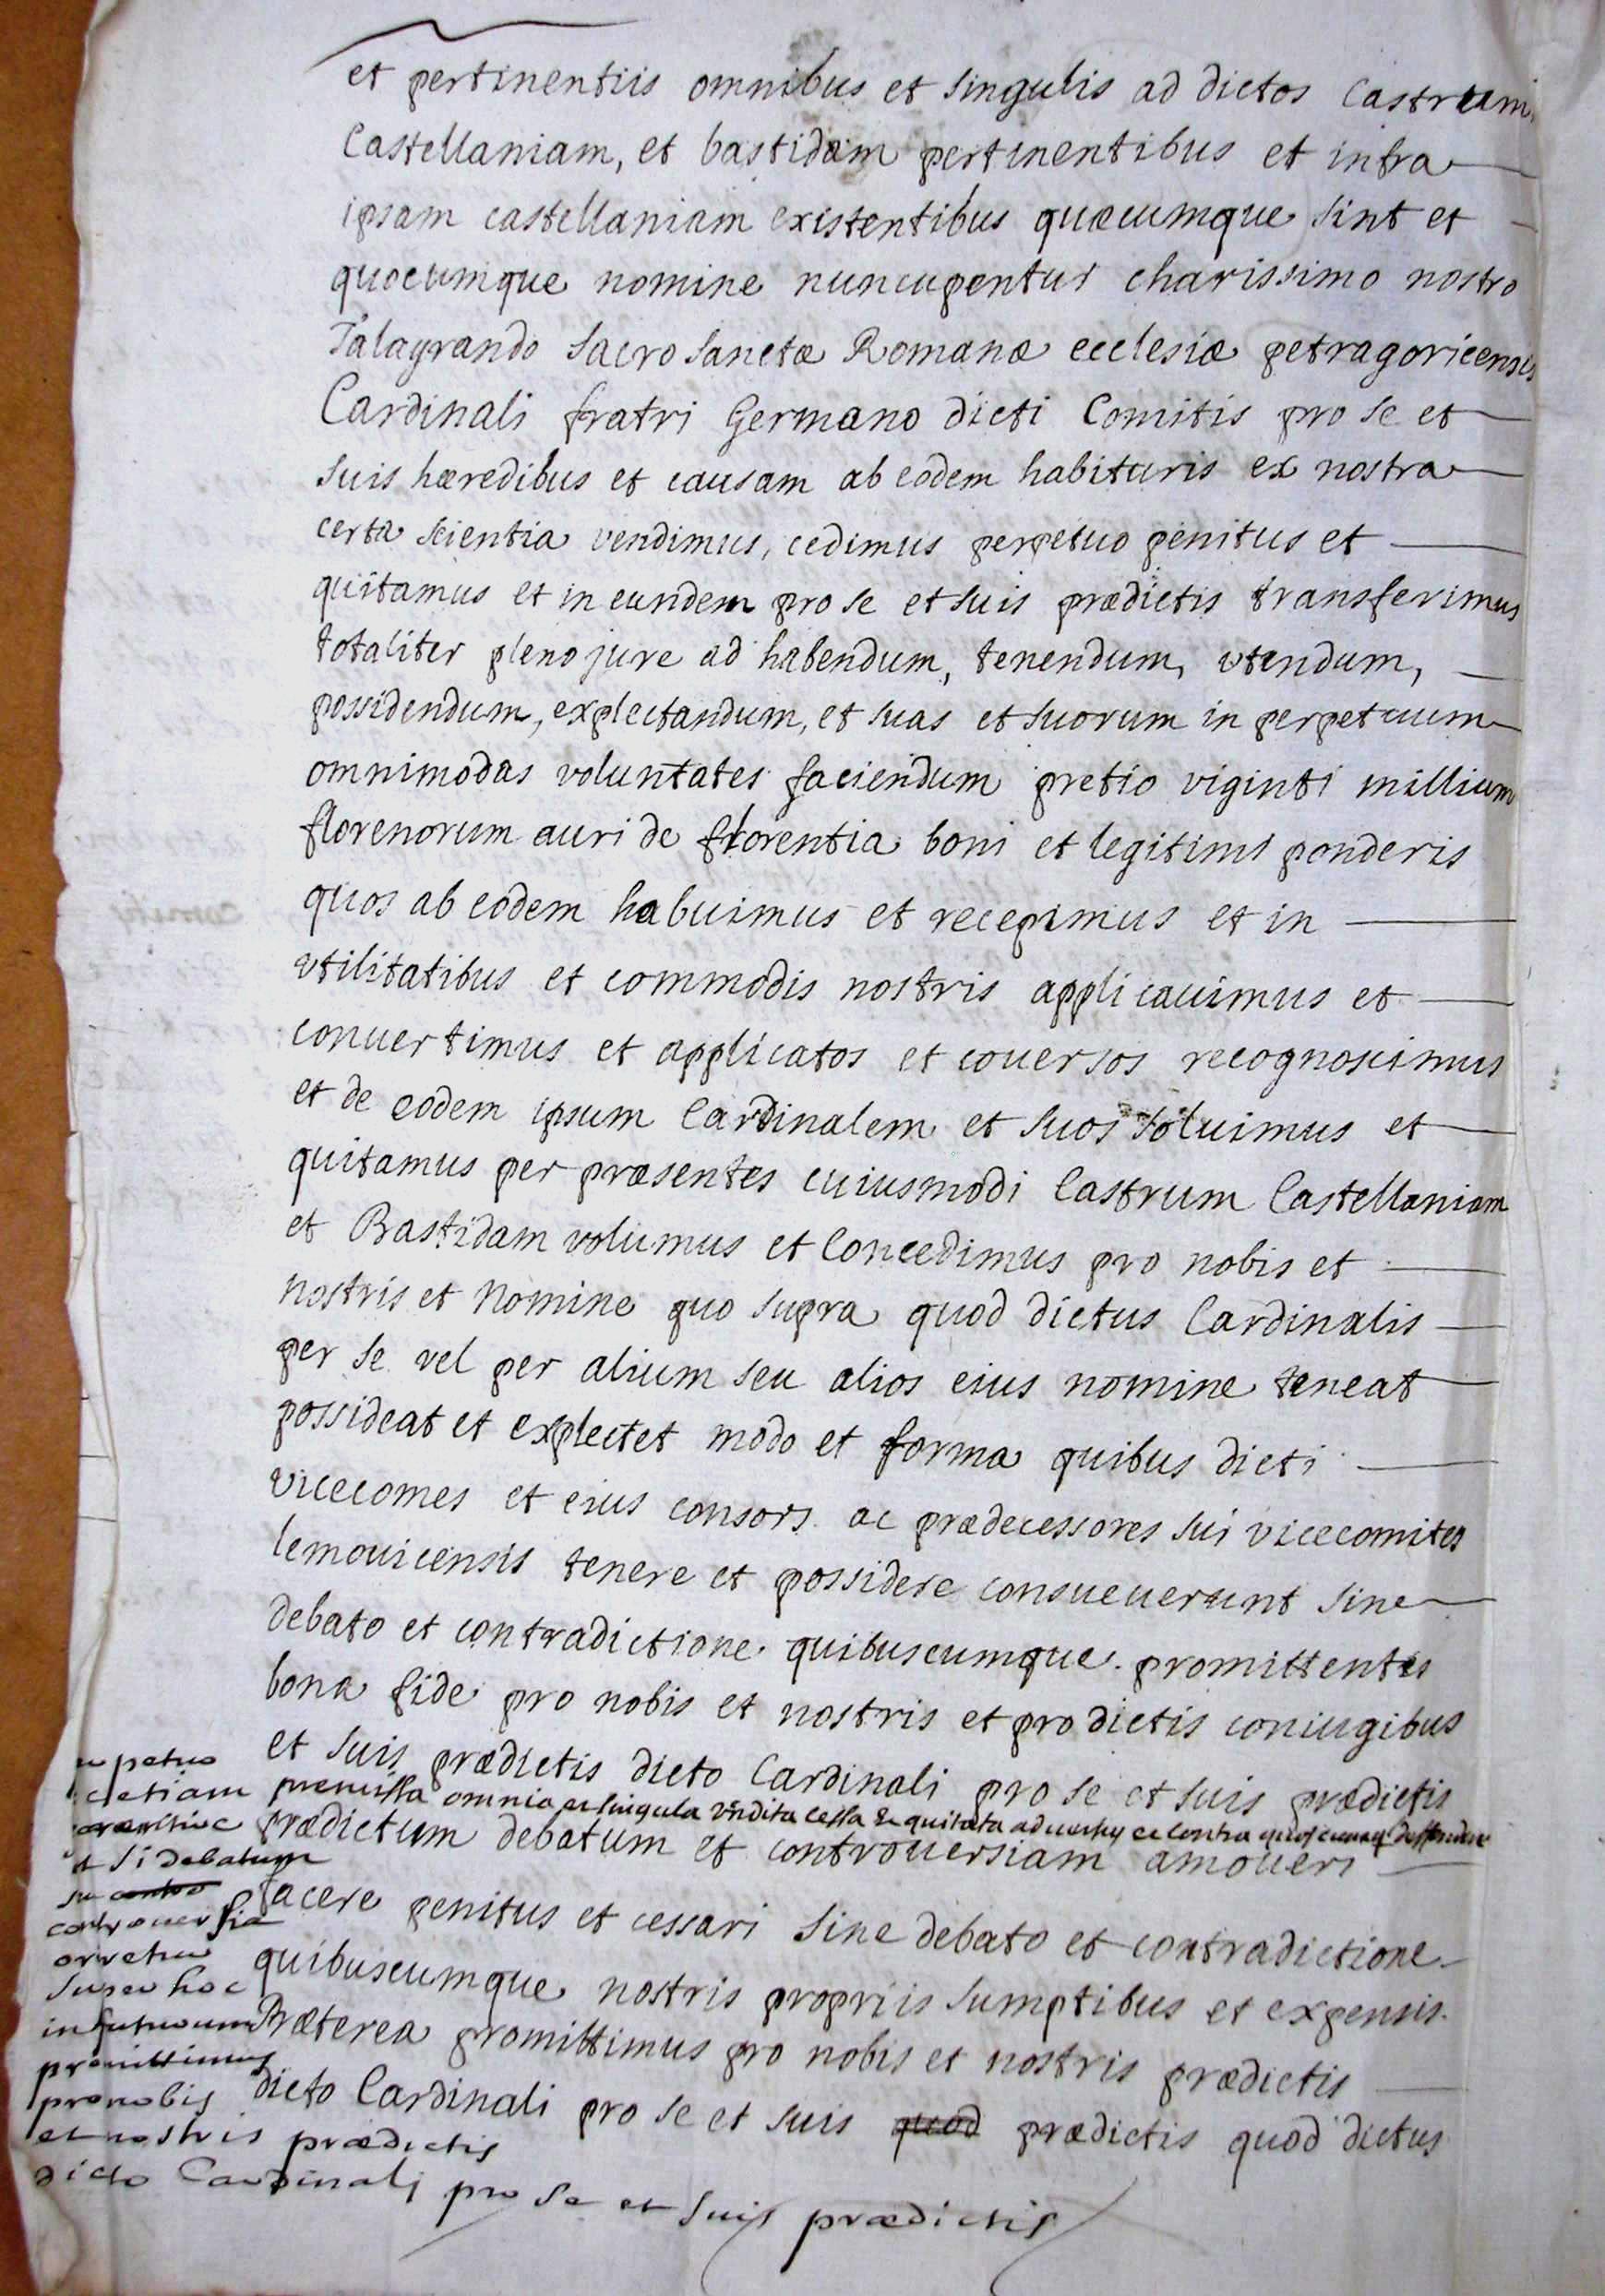 et pertinentiis omnibus et singulis ad dictos Castrum,
Castellaniam, et bastidam pertinentibus et infra
ipsam castellaniam existentibus quæcumque sint et
quocumque nomine nuncupentur charissimo nostro
Talayrando sacro sanctæ Romanæ ecclesiæ petragoricensis
Cardinali fratri Germano dicti Comitis pro se et
suis hæredibus et causam ab eodem habituris ex nostra
certa scientia vendimus, cedimus perpetuo penitus et
quitamus et in eundem pro se et suis prædictis transferimus
totaliter pleno jure ad habendum, tenendum, vtendum,
possidendum, explectandum, et suas et suorum in perpetuum
omnimodas voluntates faciendum pretio viginti millium
florenorum auri de florentia boni et legitimi ponderis
quos ab eodem habuimus et recepimus et in
vtilitatibus et commodis nostris applicauimus et
conuertimus et applicatos et couersos recognoscimus
et de eodem ipsum Cardinalem et suos soluimus et
quitamus per præsentes cuiusmodi Castrum Castellaniam
et Bastidam volumus et Concedimus pro nobis et
nostris et nomine quo supra quod dictus Cardinalis
per se vel per alium seu alios eius nomine teneat
possideat et explectet modo et forma quibus dicti
vicecomes et eius consors. ac prædecessores sui vicecomites
lemouicensis tenere et possidere consueuerunt sine
debato et contradictione quibuscumque. promittentes
bona fide pro nobis et nostris et pro dictis coniugibus
et suis prædictis dicto Cardinali pro se et suis prædictis
premissa omnia et singula vendita cessa et quitata aduersus et contra quoscumq deffendere
prædictum debatum et controuersiam amoueri
facere penitus et cessari sine debato et contradictione
quibuscumque nostris propriis sumptibus et expensis.
Præterea promittimus pro nobis et nostris prædictis
dicto Cardinali pro se et suis quod prædictis quod dictus
petuo
etiam
et si debatum
seu contro
controuersia
super hoc
in futurum
promittimus
pro nobis
et nostris prædictis
dicto Cardinali pro se et suis prædictis